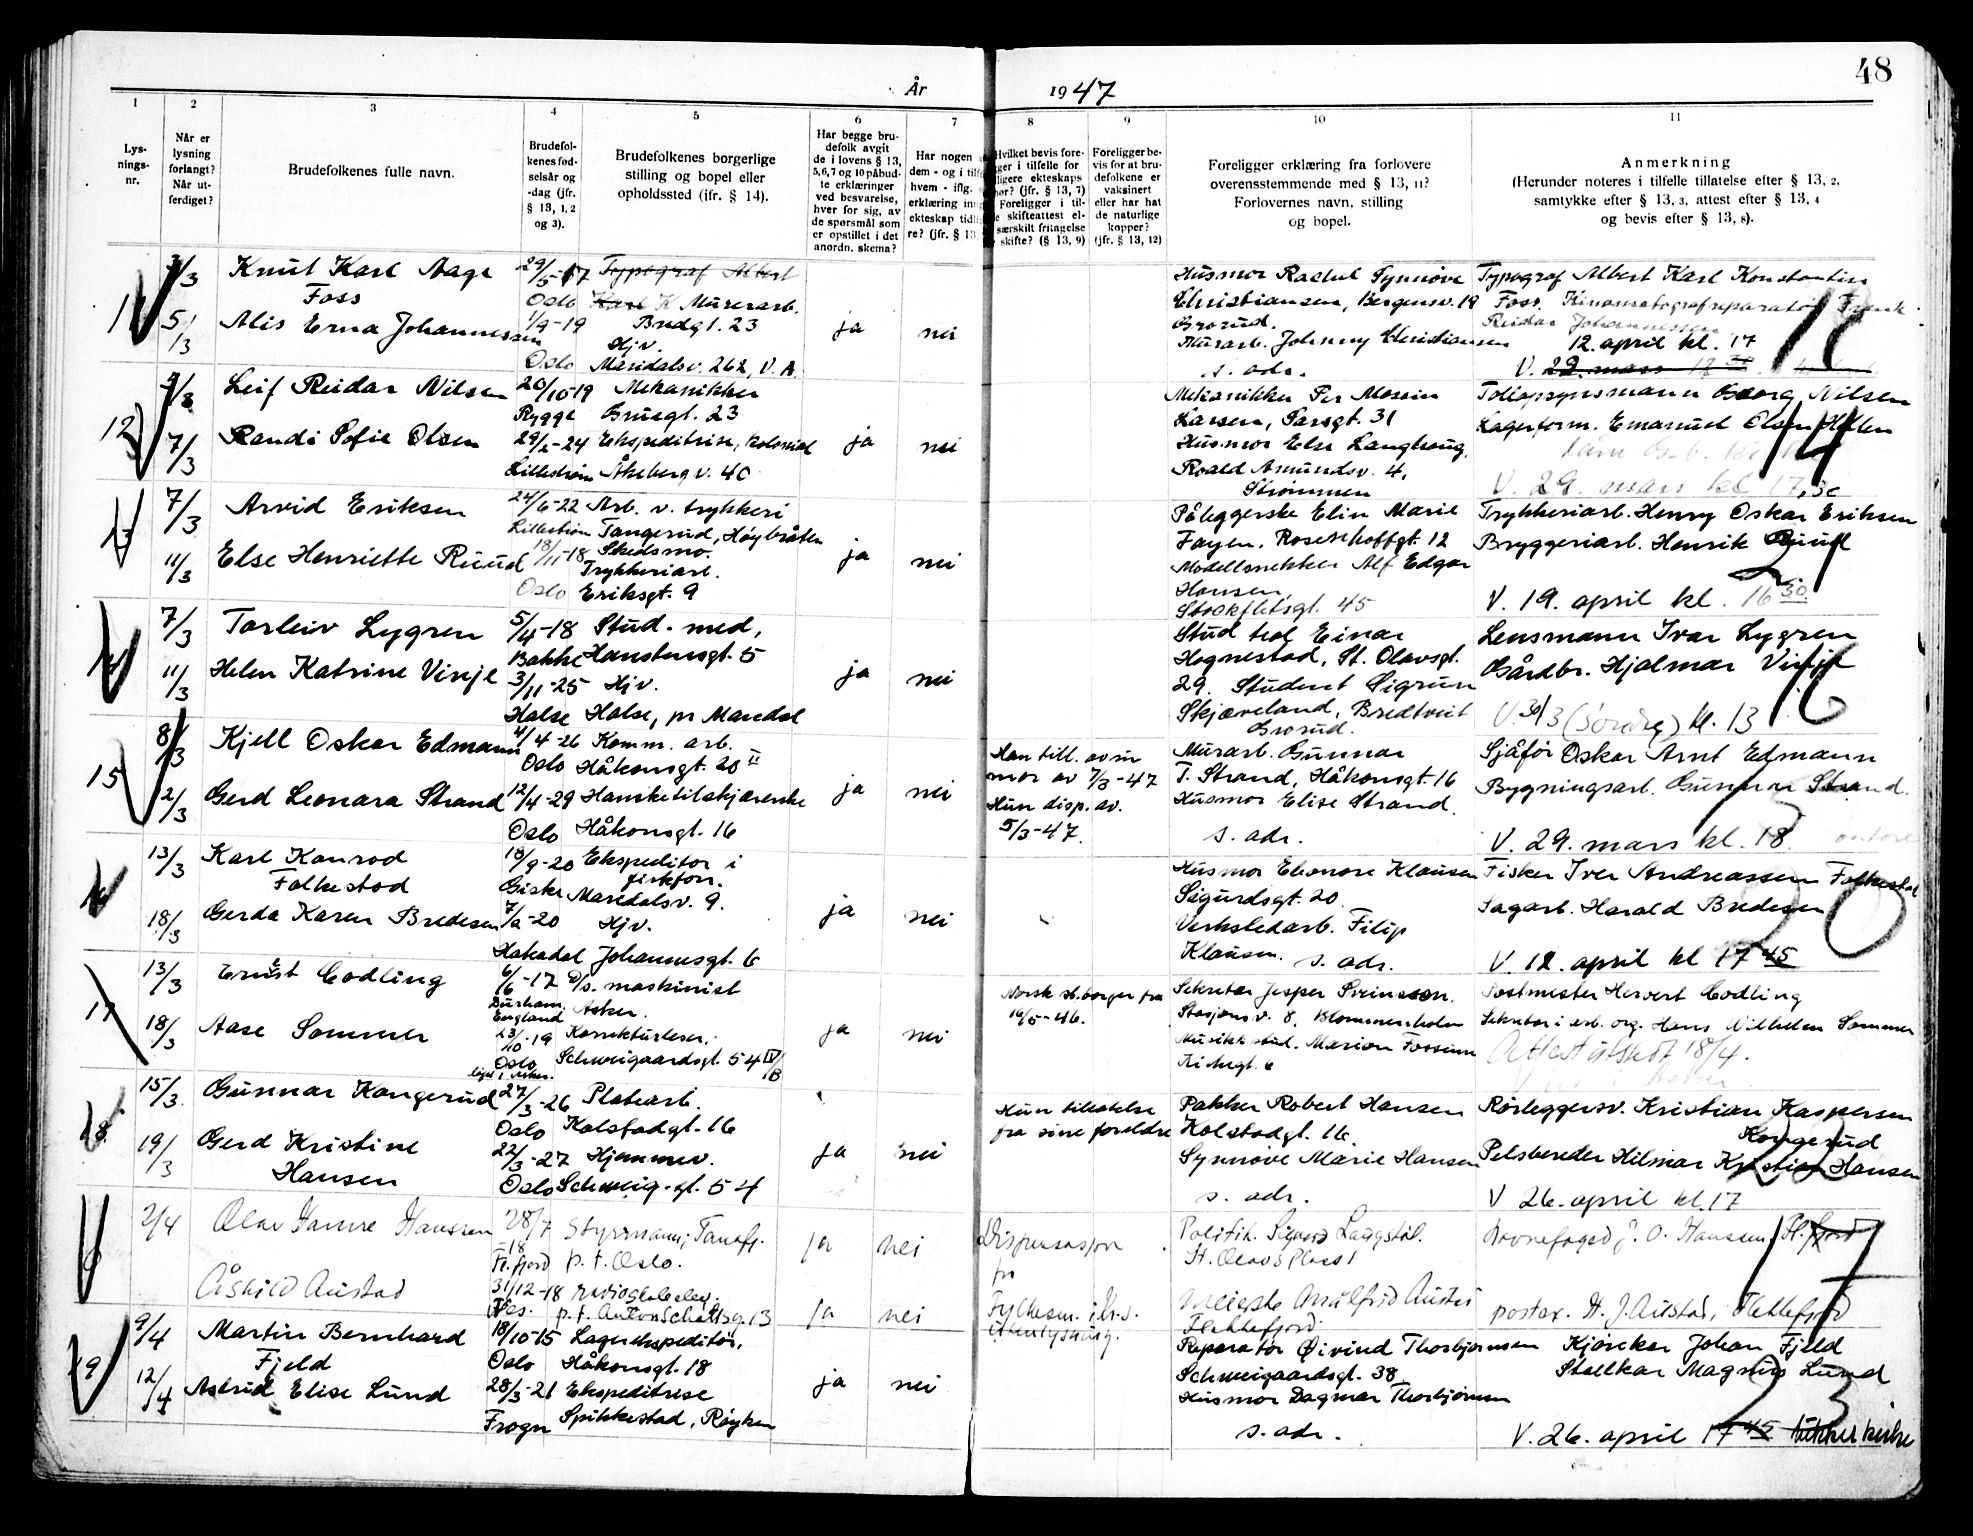 48
År 1947
1
2
3
4
5
6
7
8
9
10
11
Lys-
nings-
nr.
Når er
lysning
forlangt?
Når ut-
ferdiget?
Brudefolkenes fulle navn.
Brudefol-
kenes fød-
selsår og
-dag (jfr.
§ 13, 1, 2
og 3).
Brudefolkenes borgerlige
stilling og bopel eller
opholdssted (ifr. § 14).
Har begge bru-
defolk avgit
de i lovens § 13,
5,6,7 og 10 påbud-
te erklæringer
ved besvarelse,
hver for sig, av
de spørsmål som
er opstillet i det
anordn. skema?
Har nogen
dem - og i tilf
hvem - iflg.
erklæring inn
ekteskap tidli
re? (jfr. § 13,
Hvilket bevis fore-
ger i tilfelle for
ligere ekteskaps
hør? (jfr. § 13, 7)
Foreligger i til-
e skifteattest el-
særskilt fritagelse
skifte? (§ 13, 9)
Foreligger be-
vis for at bru-
defolkene er
vaksinert
eller har hat
de naturlige
kopper?
(jfr. § 13, 12)
Foreligger erklæring fra forlovere
overensstemmende med § 13, 11?
Forlovernes navn, stilling
og bopel.
Anmerkning
(Herunder noteres i tilfelle tillatelse efter § 13, 2,
samtykke efter § 13, 3, attest efter § 13, 4
og bevis efter § 13, 8).
11
3/3
5/3
Knut Karl Aage
Foss
Alis Erna Johannessen
29/5-17
Oslo
1/9-19
Oslo
Typograf Albert
Karl K Murerarb.
Bredgt. 23
Hjv.
Maridalsv. 262, V. A.
ja
nei
Husmor Rachel Synnøve
Christiansen, Bergensv. 19
Grorud.
Murarb. Johnny Christiansen
s. adr.
Typograf Albert Karl Konstantin
Foss, Kinomatografreparatør Frank
Reidar Johannessen
12. april kl. 17
V. 29. mars 17
12
7/3
Leif Reidar Nilsen
Randi Sofie Olsen
20/10-19
Rygge
29/2-24
Lillestrøm
Mekanikker
Bruegt. 23
Ekspeditrise, kolonial
Åkebergv. 40
ja
nei
Mekanikker Per Mossin
Larsen, Sarsgt. 31
Husmor Else Langhaug,
Roald Amundsv. 4,
Strømmen
Tolloppsynsmann Georg Nilsen
Lagerform. Emanuel Olsen
V. 29. mars kl 17,30
13
7/3
11/3
Arvid Eriksen
Else Henriette Ruud
24/6-22
Lillestrøm
18/11-18
Oslo
Arb. v. trykkeri
Tangerud, Høybråten
Skedsmo.
Trykkeriarb.
Eriksgt. 9
ja
nei
Påleggerske Elin Marie
Fayen, Rosenhoffgt. 12
Modellsnekker Alf Edgar
Hansen,
Stockfletsgt. 45
Trykkeriarb. Henry Oskar Eriksen
Bryggeriarb. Henrik Ruud
21
V. 19. april kl. 16 30
14
7/3
11/3
Torleiv Lygren
Helen Katrine Vinje
5/4-18
Bakke
3/11-25
Halse
Stud. med,
Hanstensgt. 5
Hjv.
Halse, pr Mandal
ja
nei
Stud teol Einar
Hognestad, St. Olavsgt.
29. Student Sigrun
Skjæveland, Bredtveit
Grorud.
Lensmann Ivar Lygren
Gårdbr. Hjalmar Vinje
16
V 30/3 (Søndre) kl. 13
15
8/3
Kjell Oskar Edmann
Gerd Leonara Strand
4/4-26
Oslo
12/4-29
Oslo
Komm. arb.
Håkonsgt. 20 II
Hansketilskjærerske
Håkonsgt. 16
ja
nei
Han till. av sin
mor av 7/3-47
Hun disp. av.
5/3-47.
Murarb. Gunnar
T. Strand, Håkonsgt. 16
Husmor Elise Strand.
s. adr.
Sjåfør Oskar Arnt Edmann
Bygningsarb. Gunnar Strand.
V. 29. mars kl. 18
16
13/3
18/3
Karl Konrad
Folkestad
Gerda Karen Bredesen
18/9-20
Giske
7/2-20
Hakadal
Ekspeditør i
fiskforr.
Maridalsv. 9.
Hjv.
Johannesgt. 6
ja
nei
Husmor Eleonore Klausen
Sigurdsgt. 20
Verkstedarb. Filip
Klausen. s. adr.
Fisker Iver Andreassen Folkestad
Sagarb. Harald Bredesen
20
V. 12. april kl 17 45
17
13/3
18/3
Ernst Codling
Aase Sommer
6/6-17
Durham,
England
23/10-19
Oslo
D/s. maskinist
Asker.
Korrekturleser,
Schweigaardsgt. 54 IV B
ja
nei
Norsk st.borger fra
10/5-46.
Sekretær Jesper Sveinsson.
Stasjonsv. 8, Blommenholm
Musikk stud. Marion Fossum
Kirkegt. 6
Postmester Hervert Codling
Sekretær i arb. org. Hans Wilhelm Sommer
Attest utstedt 18/4.
18
15/3
19/3
Gunnar Kongerud
Gerd Kristine
Hansen
27/3-26
Oslo
22/3-27
Oslo
Platearb.
Kolstadgt. 16
Hjemmev.
Schweig. gt. 54
ja
nei
Hun tillatelse
fra sine foreldre
Pakker Robert Hansen
Kolstadgt. 16.
Synnøve Marie Hansen
s. adr.
Rørleggersv. Kristian Kaspersen
Kongerud
Pelsbereder Hilmar Kristian Hansen
22
V 26. april kl. 17
2/4
Olav Hamre Hanssen
Åshild Austad
28/7
-18
Fl.fjord
31/12-18
Styrmann, Tanafj.
p. t. Oslo.
p. t. Anton Schøttsg. 13
ja
nei
ja
nei
Dispensasjon
fra
Fylkesm.
Politik. Sigurd Langstøl.
St. Olavs Plass 1
Flekkefjord.
Havnefoged J. O. Hanssen, Fl. fjord
17
postex. H. J. Austad, Flekkefjord
19
9/4
12/4
Martin Bernhard
Fjeld
Astrid Elise Lund
18/10-15
Oslo
28/3-21
Frogn
Lagerekspeditør,
Håkonsgt. 18
Ekspeditrise
Spikkestad, Røyken
ja
nei
Reparatør Øivind Thorbjørnsen
Schweigaardsgt. 38
Husmor Dagmar Thorbjørnsen
s. adr.
Kjørekar Johan Fjeld
Stallkar Magnus Lund
23
V. 26. april 17 45